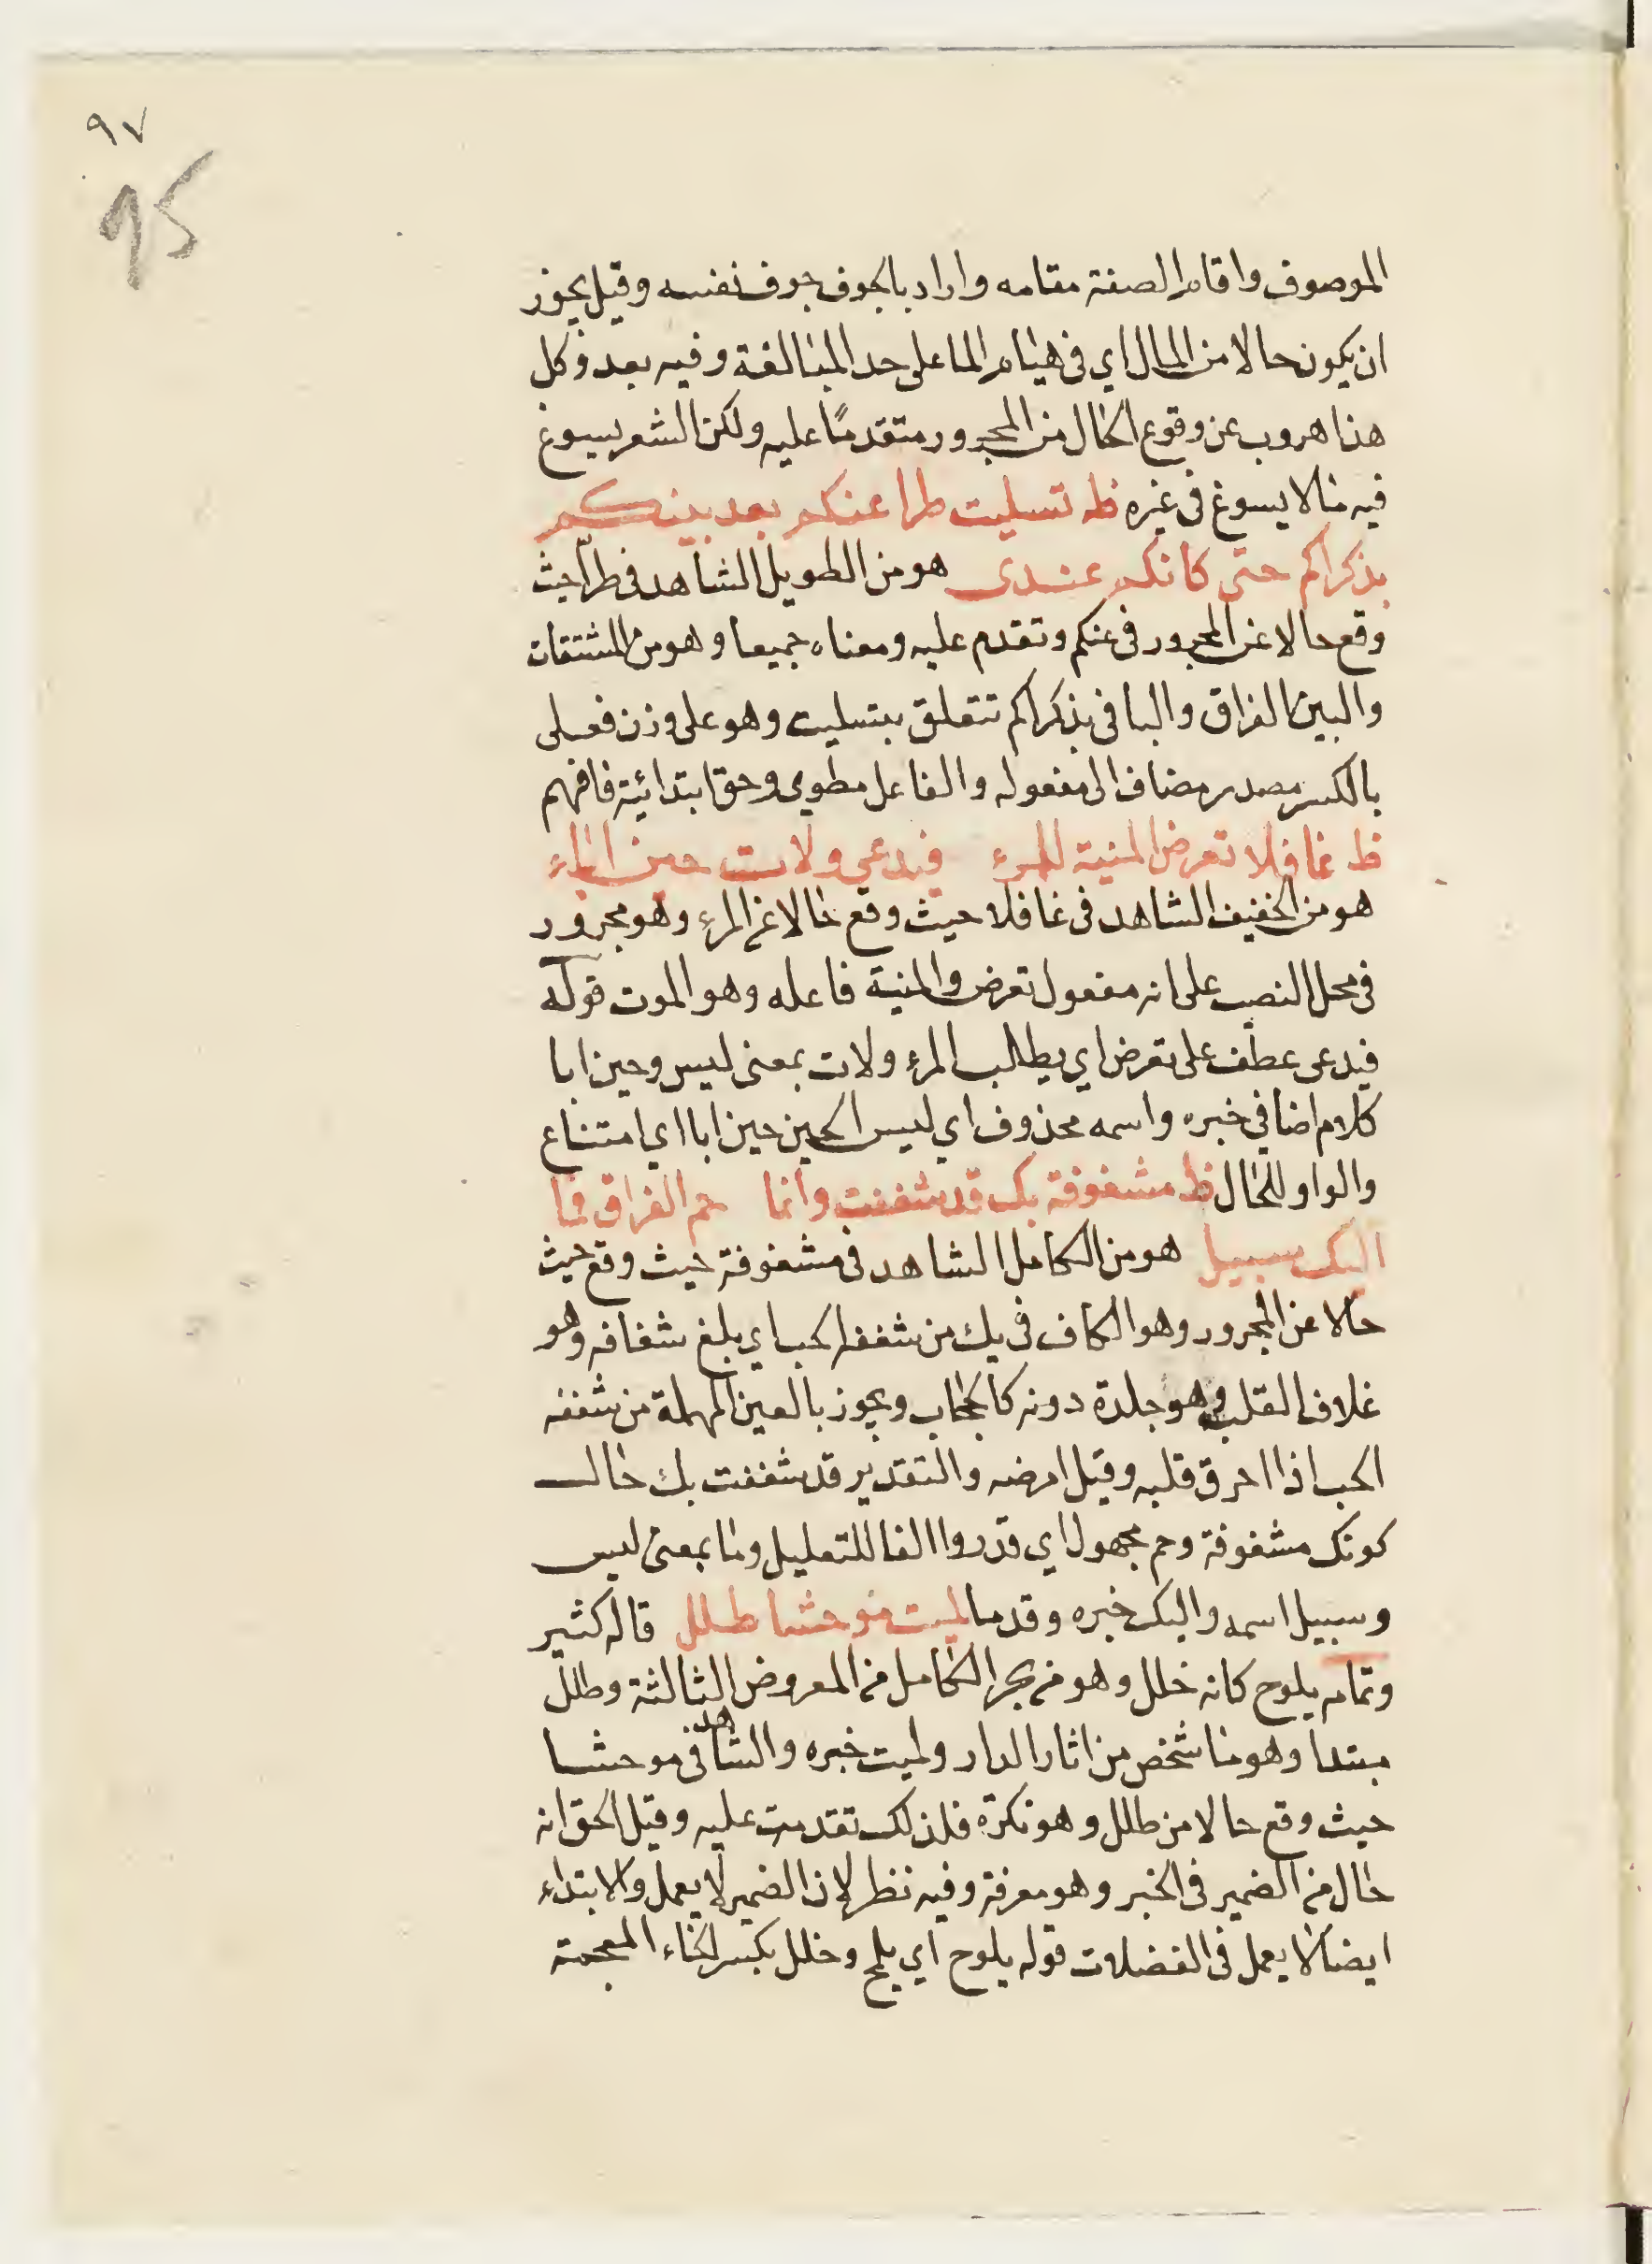 ٩٧
٩٥
الموصوف واقام الصفة مقامه واراد بالجوف جوف نفسه وقيل يجوز
ان يكون حالا من المال اي في هيام الما على حد المبالغة وفيه بعد وكل
هذا هروب عن وقوع الحال من المجرور متقدمًا عليه ولكن الشعر يسوغ
فيه ما لا يسوغ في غيره ظه تسليت طرا عنكم بعد بينكم
بذكراكم حتى كانكم عندى هو من الطويل الشاهد في طرا حيث
وقع حالا عن المجرور في عنكم وتقدم عليه ومعناه جميعا وهو من المشتقات
والبين الفراق والبا في بذكراكم تتعلق بتسليت وهو على وزن فعلى
بالكسر مصدر مضاف الى مفعوله والفاعل مطوي وحق ابتدائية فافهم
ظ غافلا تعرض المنية للمرء فيدعى ولات حين اباء
هو من الخفيف الشاهد في غافلا حيث وقع حالا عن المرء وهو مجرور
في محل النصب على انه مفعول تعرض والمنية فاعله وهو الموت قوله
فيدعى عطف على تعرض اي يطالب المرء ولات بمعنى ليس وحين ابا
كلام اضافي خبره واسمه محذوف اي ليس الحين حين ابا اي امتناع
والواو للحال ظ مشغوفة بك قد شغفت وانما حم الفراق فما
اليك سبيل هو من الكامل الشاهد في مشغوفة حيث وقع حيث
حالا عن المجرور وهو الكاف في بك من شغفه الحب اي بلغ شغافه وهو
غلاف القلب وهو جلدة دونه كالحجاب ويجوز بالعين المهملة من شغفه
الحب اذا احرق قلبه وقيل امرضه والتقدير قد شغفت بك حال
كونك مشغوفة وحم مجهول اي قدر والفا للتعليل وما بمعنى ليس
وسبيل اسمه واليك خبره وقدما لميت موحشا طلل قاله كثير
وتمامه يلوح كانه خلل وهو من بحر الكامل من العروض الثالثة وطلل
مبتدا وهو ما شخص من اثار الدار ولميت خبره والشاهد في موحشا
حيث وقع حالا من طلل وهو نكرة فلذلك تقدمت عليه وقيل الحق انه
حال من الضمير في الخبر وهو معرفة وفيه نظر لان الضمير لا يعمل والابتداء
ايضا لا يعمل في الفضلات قوله يلوح اي يلمح وخلل بكسر الخاء المعجمة